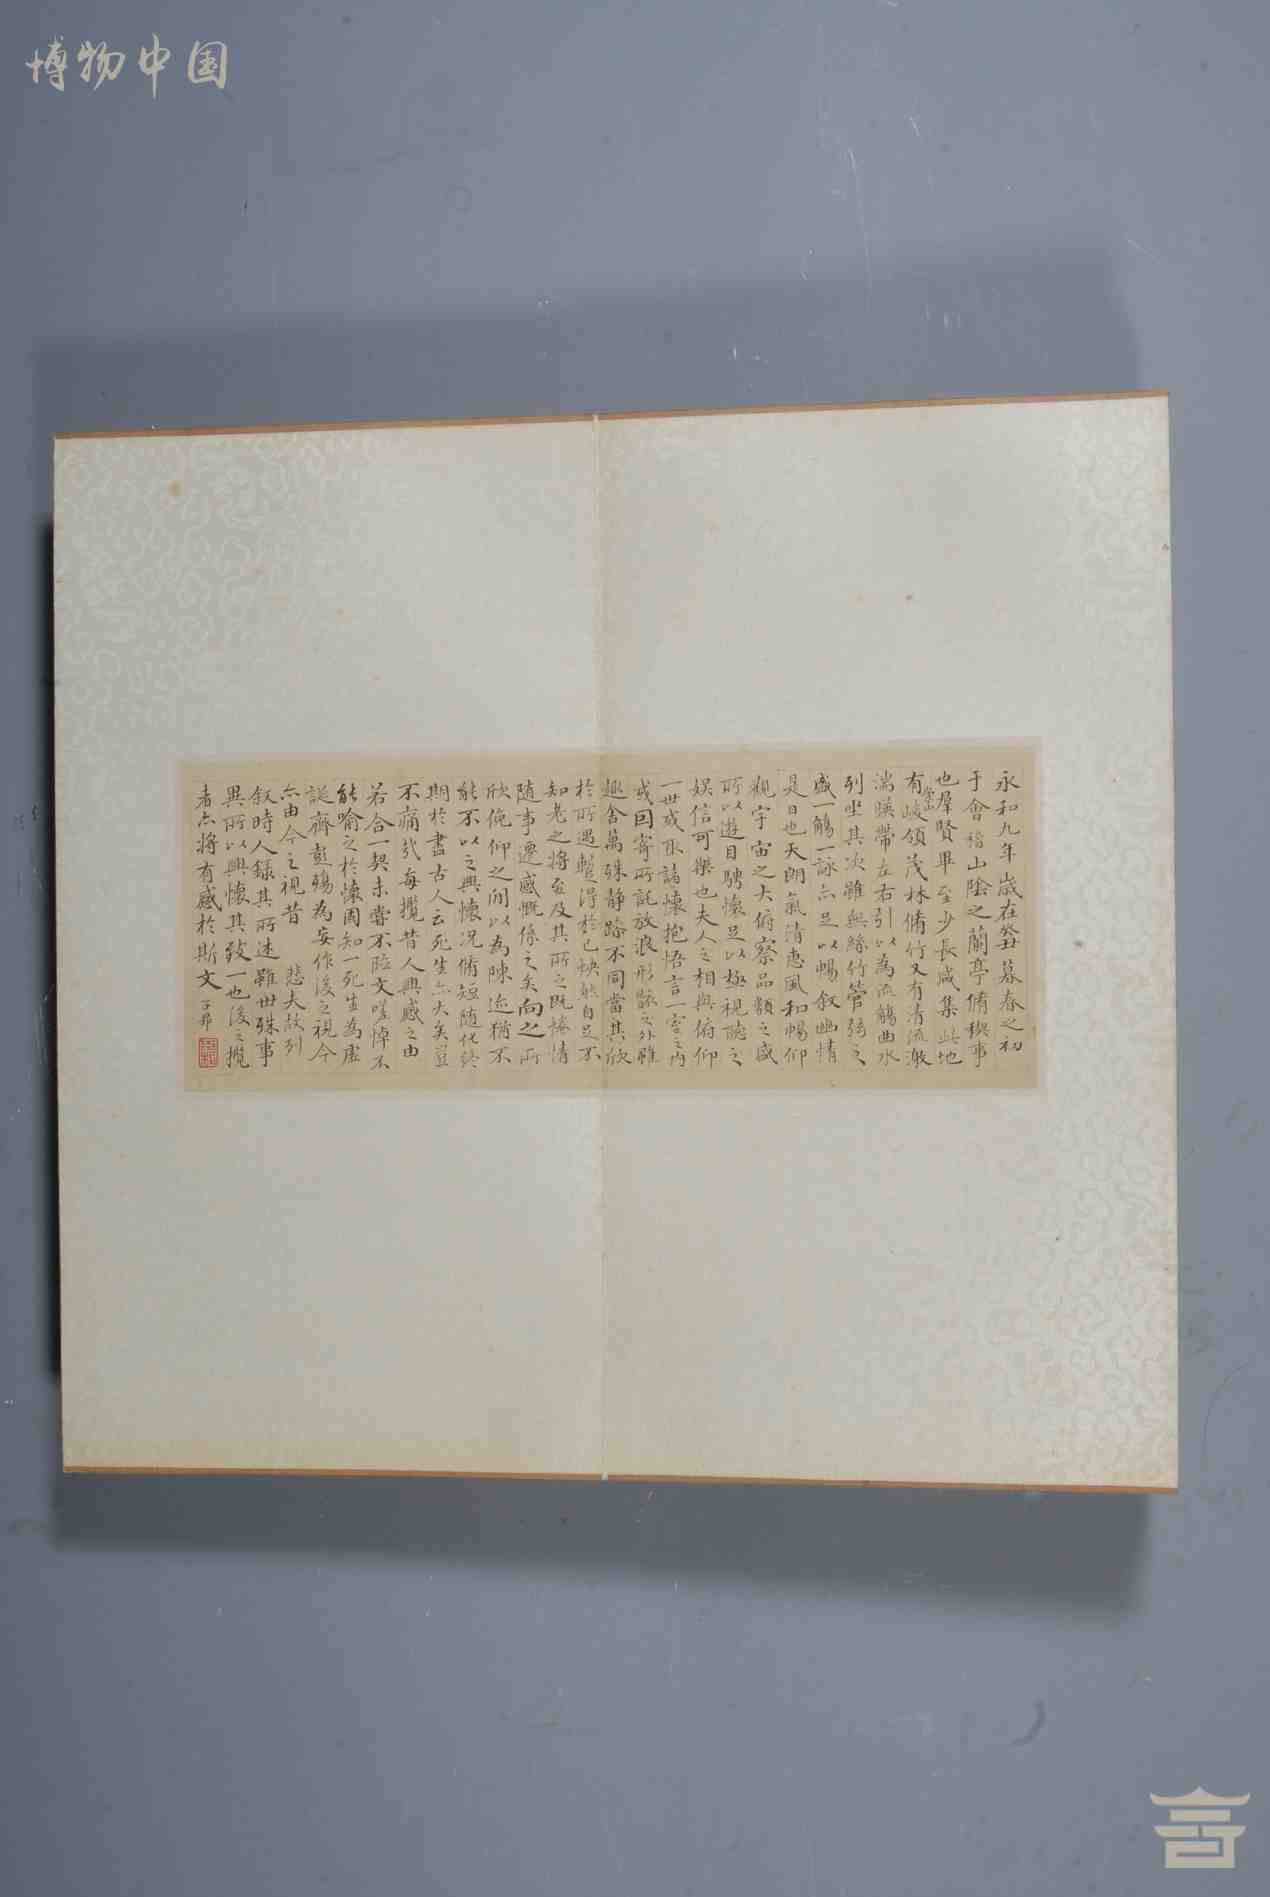 博物中国
永和九年歲在癸丑暮春之初
于會稽山陰之蘭亭脩稧事
也羣賢畢至少長咸集此地
有崇山峻領茂林脩竹又有清流激
湍暎帶左右引以為流觴曲水
列坐其次雖無絲竹管弦之
盛一觴一詠亦足以暢叙幽情
是日也天朗氣清惠風和暢仰
觀宇宙之大俯察品類之盛
所以遊目騁懷足以極視聽之
娛信可樂也夫人之相與俯仰
一世或取諸懷抱悟言一室之內
或因寄所託放浪形骸之外雖
趣舍萬殊静躁不同當其欣
於所遇蹔得於己怏然自足不
知老之將至及其所之既惓情
随事遷感慨係之矣向之所
欣俛仰之間以為陳迹猶不
能不以之興懷況脩短随化終
期於盡古人云死生亦大矣豈
不痛哉每攬昔人興感之由
若合一契未嘗不臨文嗟悼不
能喻之於懷固知一死生為虛
誕齊彭殤為妄作後之視今
亦由今之視昔 悲夫故列
叙時人錄其所述雖世殊事
異所以興懷其致一也後之攬
者亦將有感於斯文 子昂